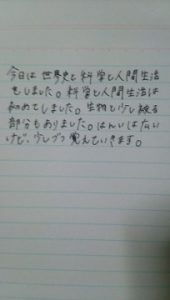 今日は世界史と科学と人間生活
をしました。科学と人間生活は
初めてしました。生物と少し被る
部分もありました。はんいは広い
けど、少しづつ覚えていきます。